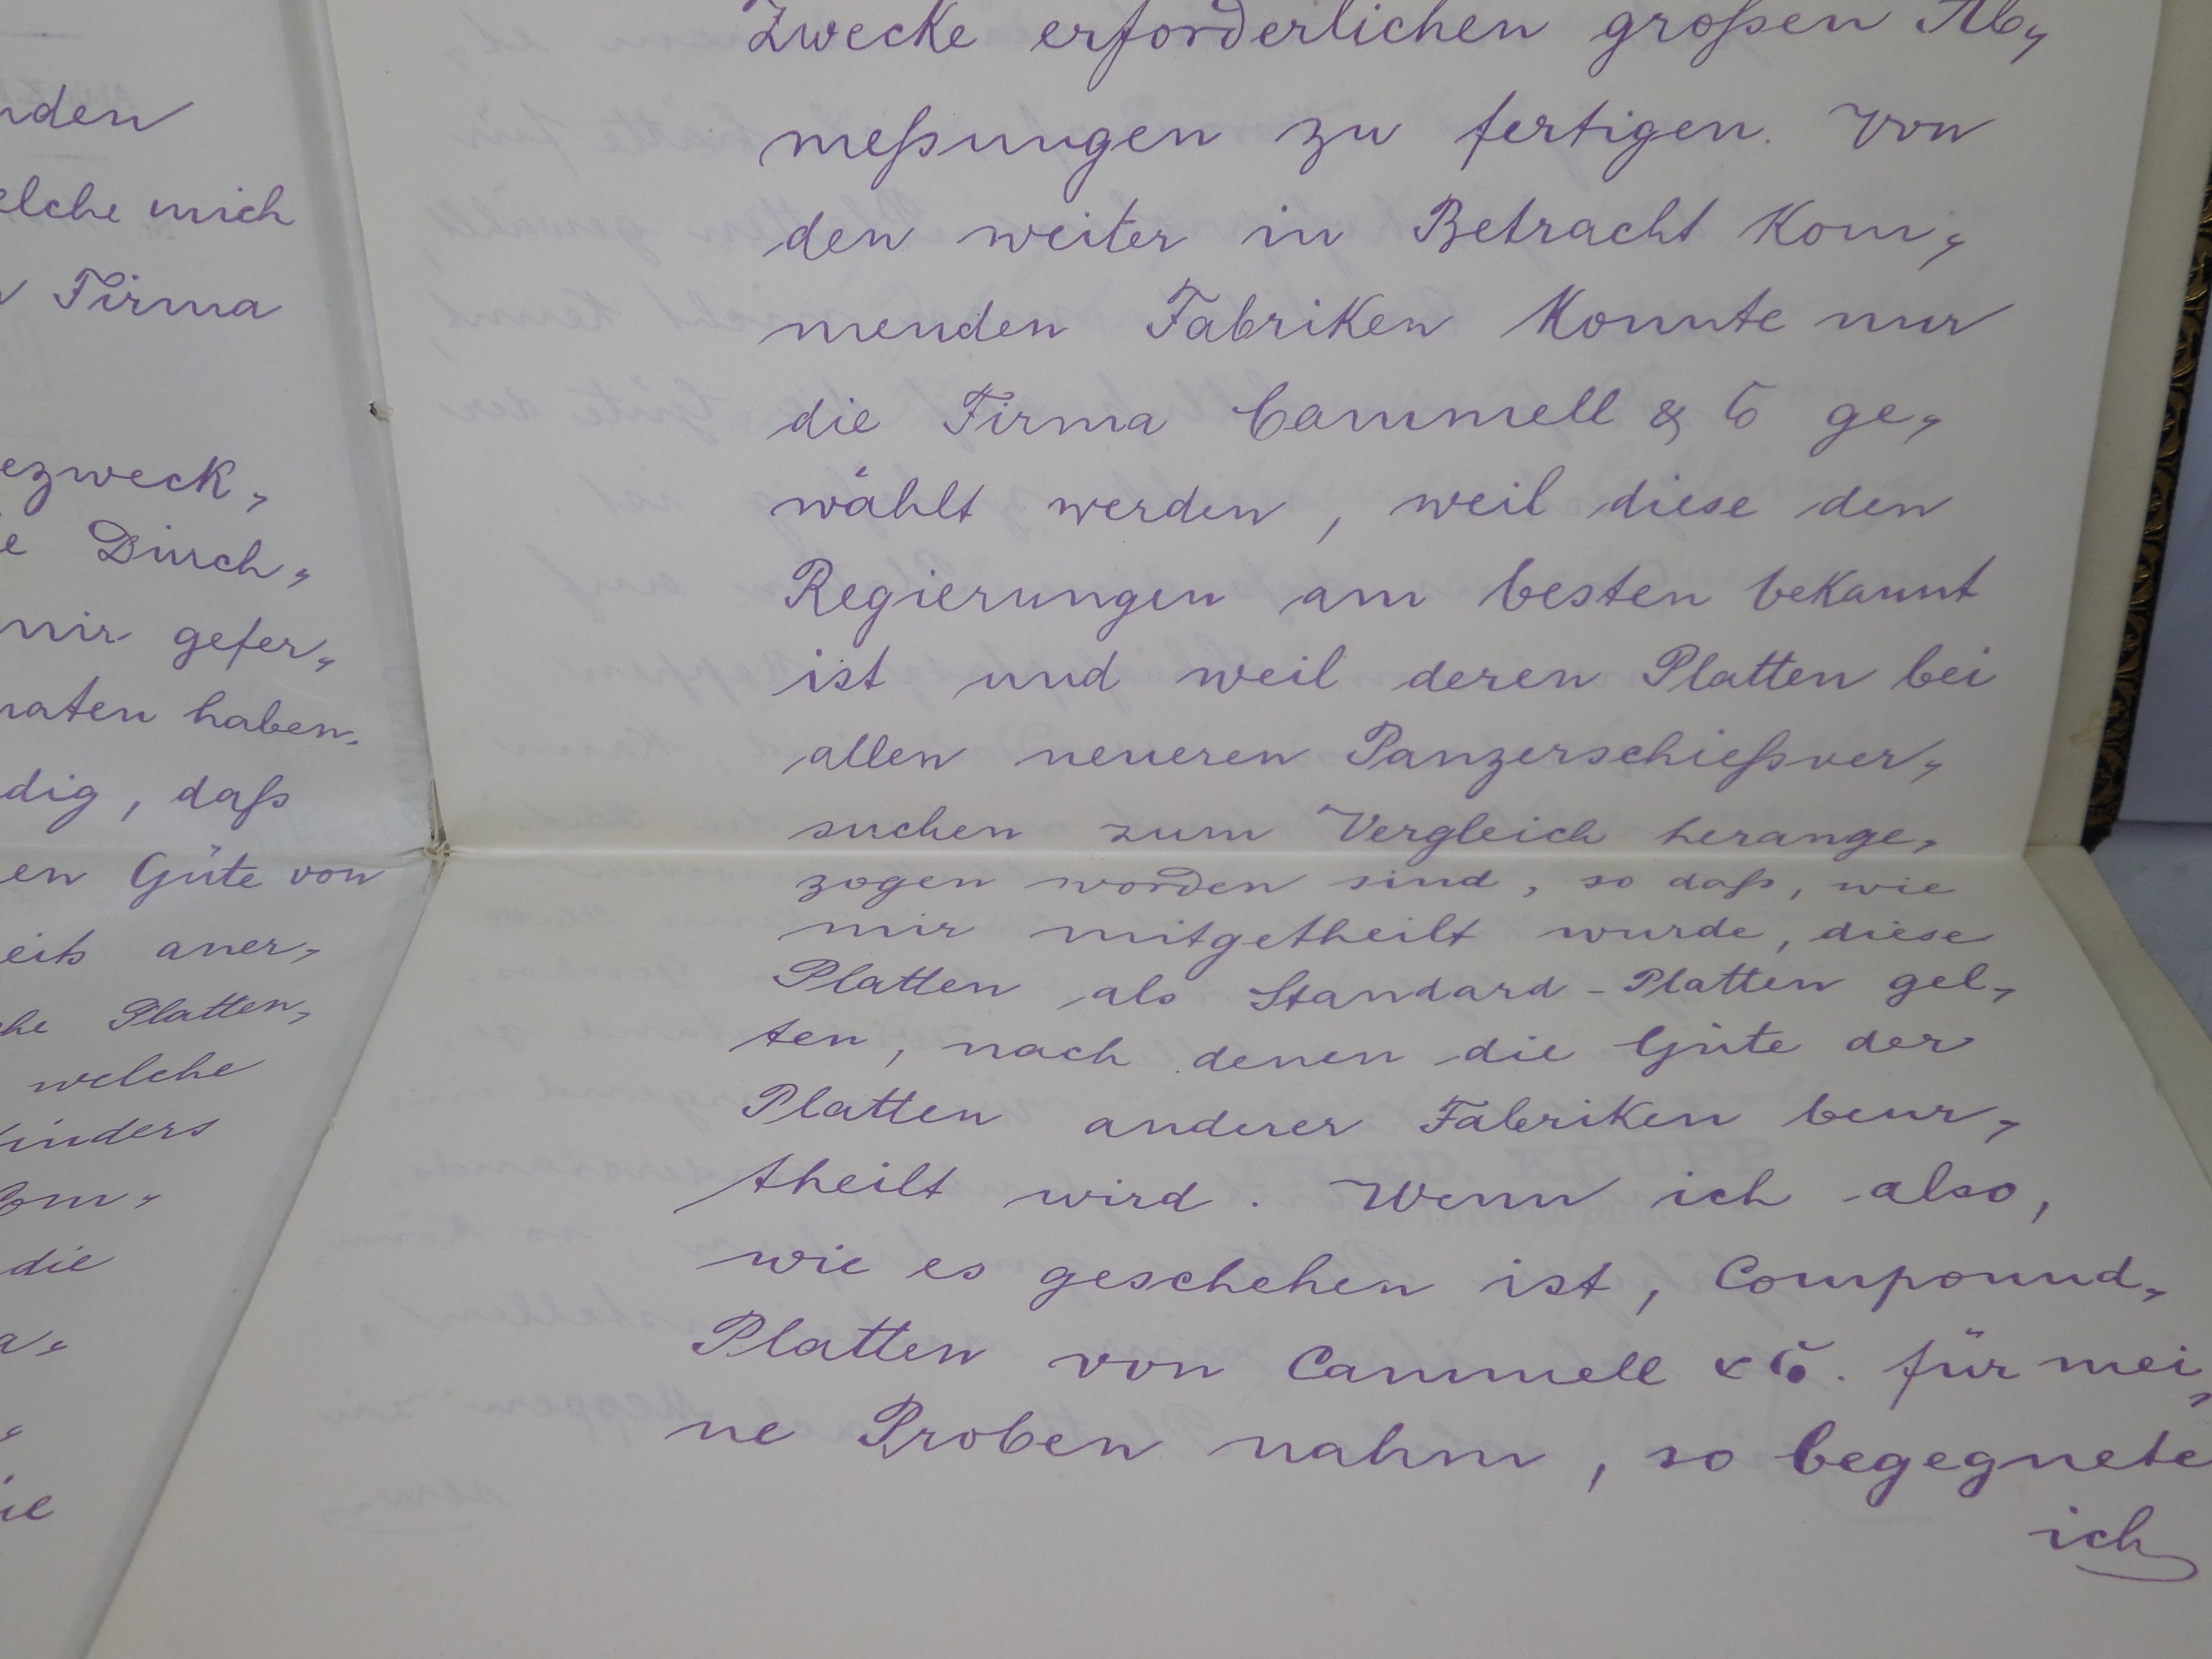 nden
elche mich
Firma
ezweck„
e Durch„
mir gefer„
naten haben.
dig, daß
en Güte von
eits aner„
he Platten„
welche
inders
om„
die
Zwecke erforderlichen großen Ab„
meßungen zu fertigen. Von
den weiter in Betracht kom„
menden Fabriken konnte nur
die Firma Cammell & Co ge„
wählt werden, weil diese den
Regierungen am besten bekannt
ist und weil deren Platten bei
allen neueren Panzerschießver„
suchen zum Vergleich herange„
zogen worden sind, so daß, wie
mir mitgetheilt wurde, diese
Platten als Standard-Platten gel„
ten, nach denen die Güte der
Platten anderer Fabriken beur„
theilt wird. Wenn ich also,
wie es geschehen ist, Compound„
Platten von Cammell & Co. für mei„
ne Proben nahm, so begegnete
ich